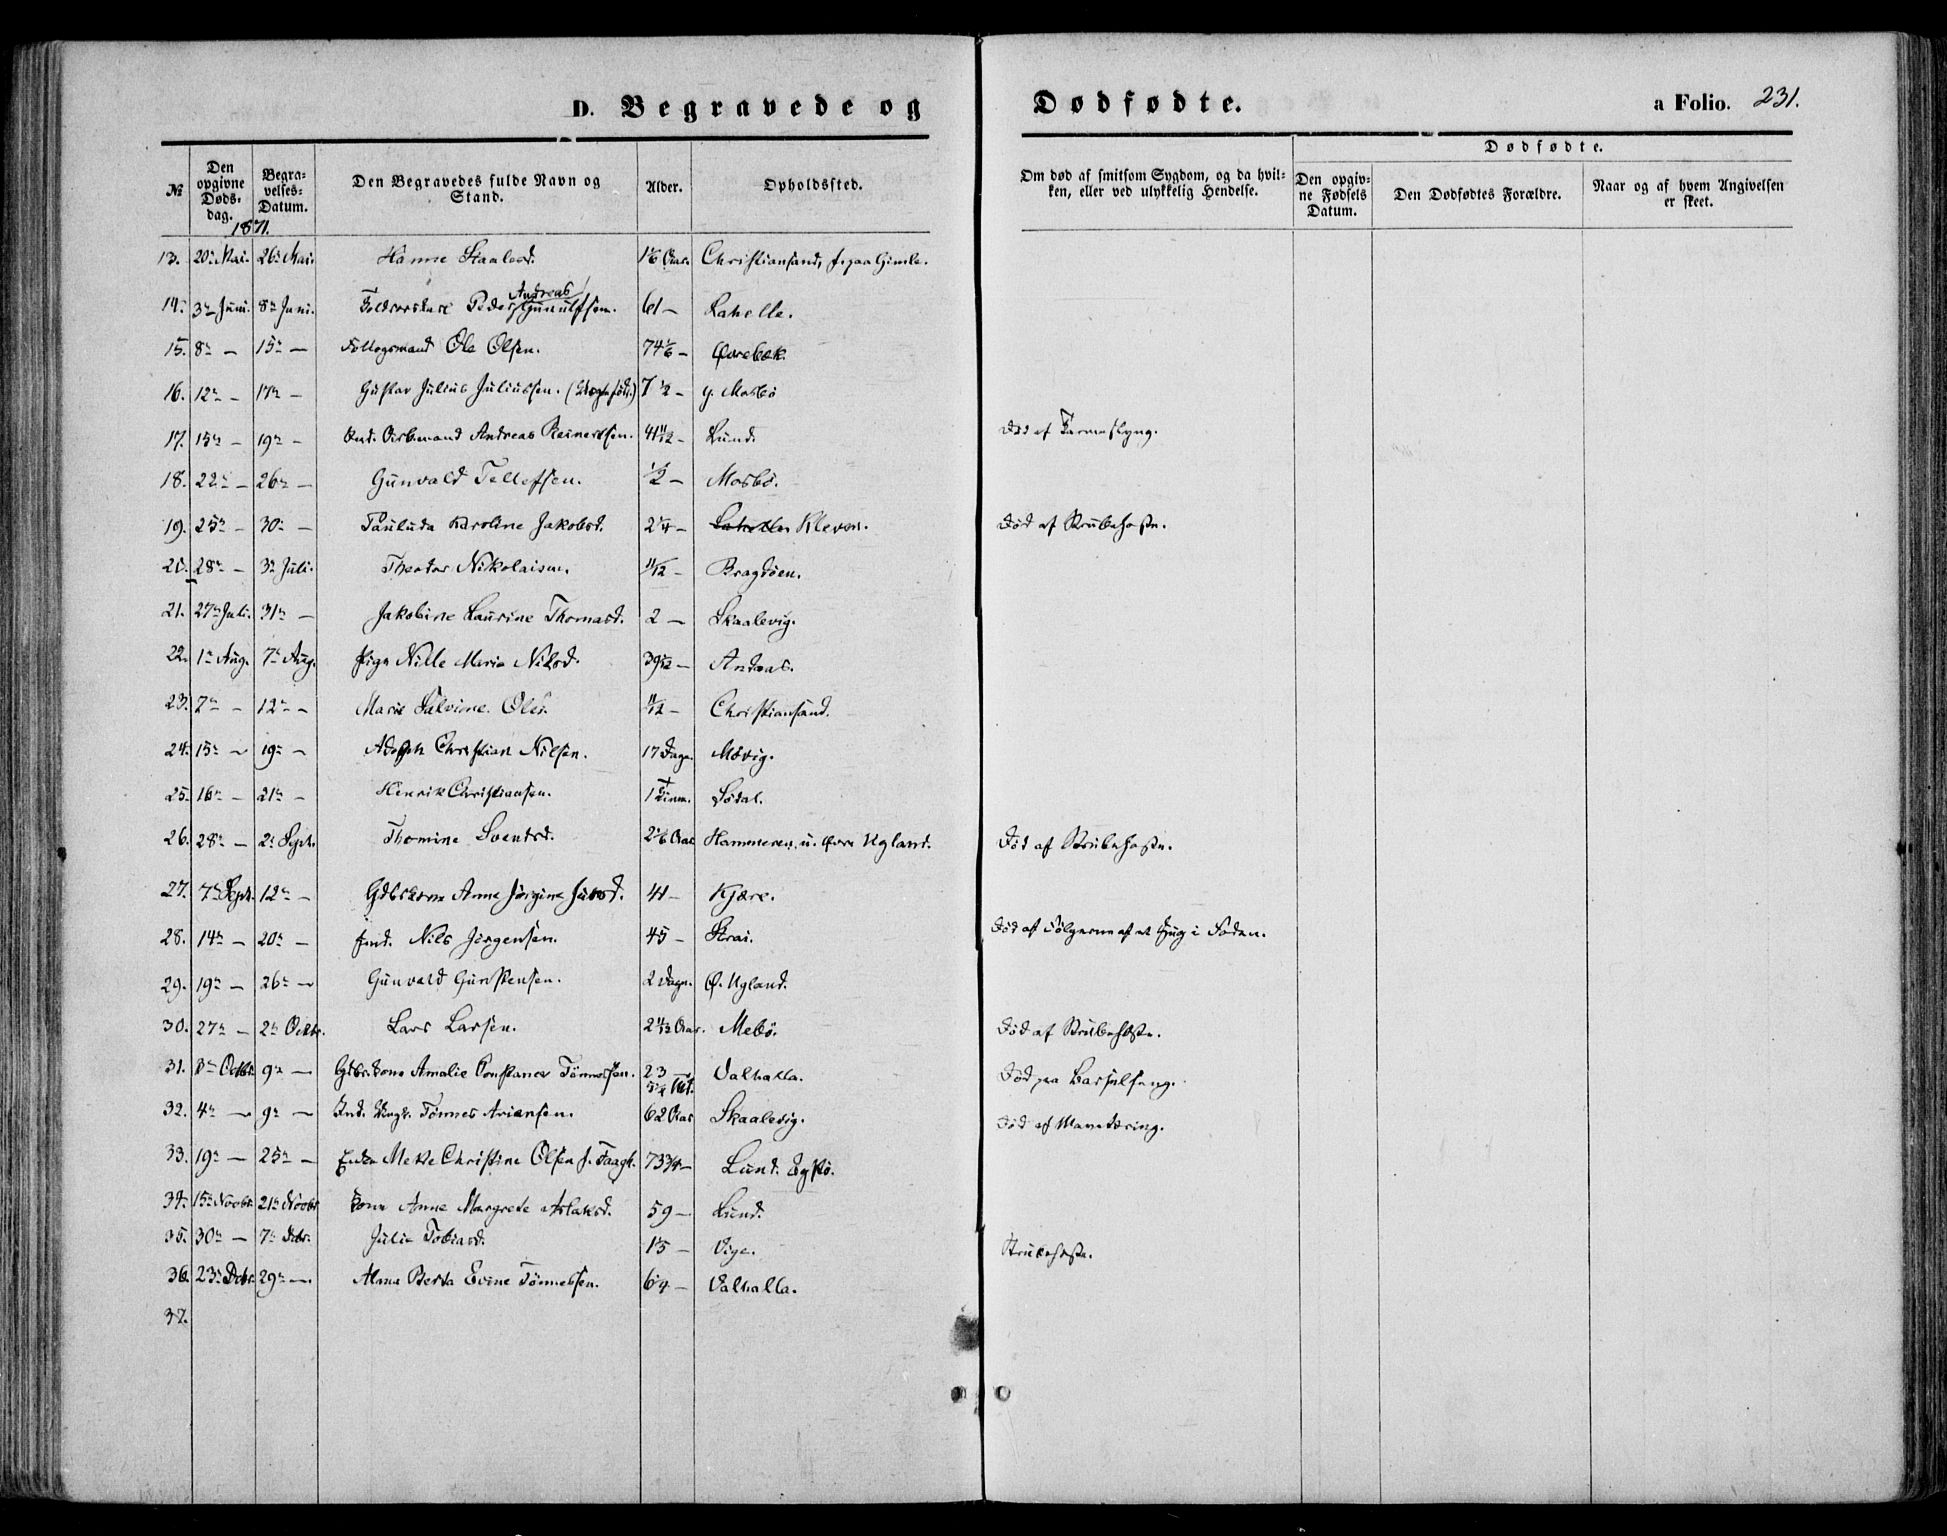 D. Begravede og Dødfødte. a Folio. 231.
№
Den opgivne Døds-dag.
Begra-velses-Datum.
Den Begravedes fulde Navn og Stand.
Alder.
Opholdssted.
Om død af smitsom Sygdom, og da hvil-ken, eller ved ulykkelig Hendelse.
Dødfødte.
Den opgiv-ne Fødsels Datum.
Den Dødfødtes Forældre.
Naar og af hvem Angivelsen er skeet.
1871.
13. 20de Mai. 26de Mai. Hanne Staalesd. 1 1/6 Aar. Christiansand, Gimle.
14. 3die Juni. 8de Juni. Peder Andreas Gunulfsen. 61 — Lahelle.
15. 8de — 15de — Ole Olsen. 74 1/6 — Øvrebæk.
16. 12te — 17de — Gustav Julius Juliussen. 7 1/2 — y. Mosbø
17. 15de — 19de — Andreas Reinertsen. 41 11/12 — Lund. Død af
18. 22de — 26de — Gunvald Tellefsen. 1/2 — Mosbø.
19. 25de — 30te — Pauluda Karoline Jakobsd. 2 1/4 — Lahelle Kleven. Død af Strubehoste.
20. 28de — 3die Juli. Theodor Nikolaisen. 11/12 — Bragdøen.
21. 27de Juli. 31te — Jakobine Laurine Thomasd. 2 — Skaalevig.
22. 1ste Aug. 7de Aug. Pige Nille Marie Nilsd. 39 — Andaas.
23. 7de — 12te — Marie Salvine Olsd. 11/12 — Christiansand.
24. 15de — 19de — Adolph Christian Nilsen. 17 Dage. Møvig.
25. 16de — 21de — Henrik Christiansen. 1 Time. Sødal.
26. 28de — 2den Sept. Thomine Svendsd. 2 1/6 Aar Hammeren u. Øvre Ugland. Død af Strubehoste.
27. 7de Sept. 12te — Gbskone Anne Jørgine Jensd. 41 — Kjære.
28. 14de — 20de — Ind. Nils Jørgensen. 45 — Strai. Død af Følgerne af et Hug i Foden.
29. 19de — 26de — Gunvald Gunstensen. 2 Dage. Ø. Ugland.
30. 27de — 2den Octbr. Lars Larsen. 2 11/12 Aar. Mebø. Død af Strubehoste.
31. 3die Octbr. 9de — Amalie Constance Tønnessen. 23 Valhalla. Død paa Barselseng.
32. 4de — 9de — Ind. Tønnes Ariansen. 62 Aar Skaalevig. Død af Mavetæring.
33. 19de — 25de — Enken Mette Christine Olsen f. Faagt. 73 3/4 — Lund. Egsø.
34. 15de Novbr. 21de Novbr. Kone Anne Margrete Aslaksd. 59 — Lund.
35. 30te — 7de Dcbr. Julie Tobiasd. 15 — Vige. Strubehoste.
36. 23de Dcbr. 29de —. Alma Berta Evine Tønnessen. 6 1/4 — Valhalla.
37.